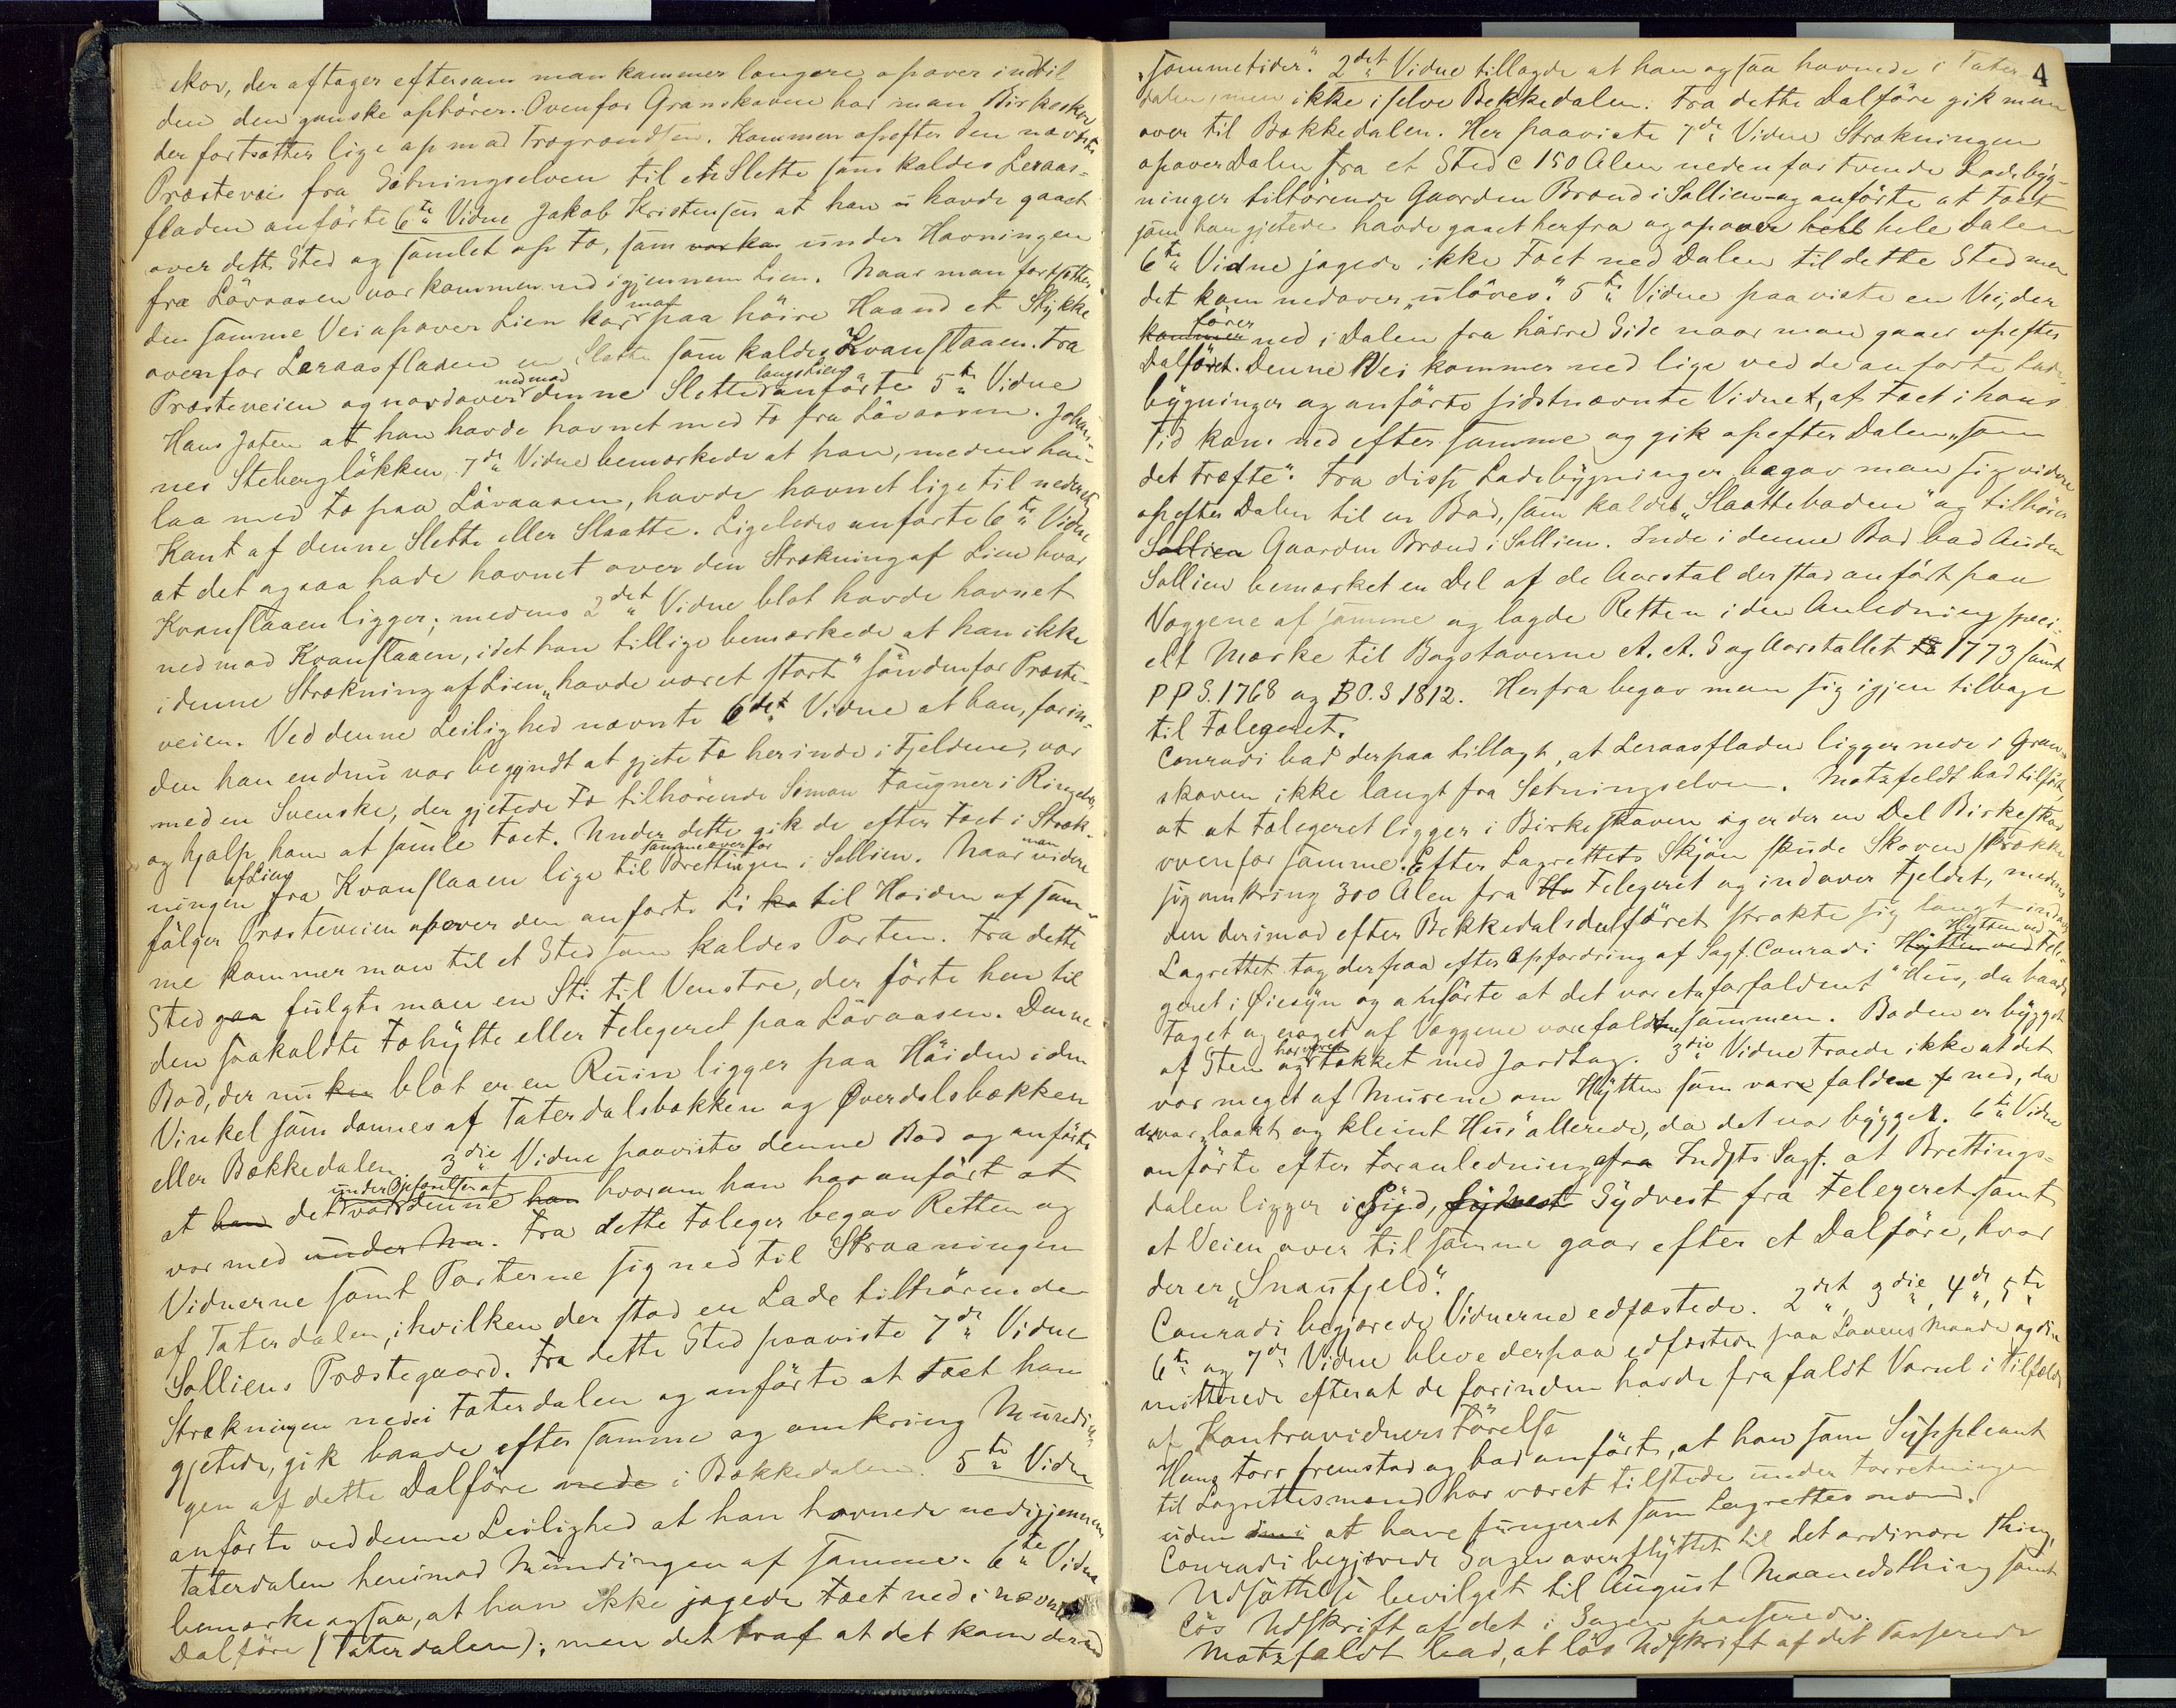 skov, der aftager eftersom man kommer længere opover indtil
den den ganske ophører. Ovenfor Granskoven har man Birkeskov
der fortsætter lige op mod Trægrændsen. Kommen opefter den nævnte
Præstevei fra Setningselven til en Slette som kaldes Leraas-
fladen anførte 6te Vidne Jakob Kristensen at han havde gaaet
over dette Sted og samlet op Fæ, som var kom under Havningen
fra Løvaasen var kommen ned igjennem Lien. Naar man fortsætter
den samme Vei opover Lien har man paa høire Haand et Stykke
ovenfor Leraasfladen en Slette som kaldes Kvanslaaen. Fra
Præsteveien og nordover ned mod denne Slette langs Lien anførte 5te Vidne
Hans Joten at han havde havnet med Fæ fra Løvaasen. Johan-
nes Steberglökken 7de Vidne bemærkede at han, medens han
laa med Fæ paa Løvaasen, havde havnet lige til nederste
Kant af denne Slette eller Slaatte. Ligeledes anførte 6te Vidne
at det ogsaa hade havnet over den Strækning af Lien hvor
Kvanslaaen ligger; medens 2det Vidne blot havde havnet
ned mod Kvanslaaen, idet han tillige bemærkede at han ikke
i denne Strækning af Lien "havde været stort" søndenfor Præste-
veien. Ved denne Leilighed nævnte 6det Vidne at han, forin-
den han endnu var begyndt at gjete Fæ herinde i Fjeldene, var
med en Svenske, der gjetede Fæ tilhørende Simon Faugner i Ringebo,
og hjalp ham at samle Fæet. Under dette gik de efter Fæet i Stræk-
ningen af Lien fra Kvanslaaen lige til sammeoverfor Brettingen i Sollien. Naar man videre
følger Præsteveien opover den anførte Li ko til Høiden af sam-
me kommer man til et Sted som kaldes Porten. Fra dette
Sted gaa fulgte man en Sti til Venstre, der førte hen til
den saakaldte Fæhytte eller Fælegeret paa Løvaasen. Denne
Bod, der nu kun blot er en Ruin ligger paa Høiden i den
Vinkel som dannes af Taterdalsbækken og Øverdalsbækken
eller Bækkedalen. 3die Vidne paaviste denne Bod og anførte
at han det var under Opførelsen af denne han hvorom han har anført at
var med under Mu. Fra dette Fæleger begav Retten og
Vidnerne samt Parterne sig ned til Skraaningen
af Taterdalen, i hvilken der stod en Lade tilhørende
Solliens Præstegaard. Fra dette Sted paaviste 7de Vidne
Strækningen ned i Taterdalen og anførte at Fæet han
gjetede, gik baade efter samme og omkring Mundin-
gen af dette Dalføre nede i Bækkedalen. 5te Vidne
anførte ved denne Leilighed at han havnede nedigjennem
Taterdalen henimod Mundingen af samme. 6te Vidne
bemærke ogsaa, at han ikke jagede Fæet ned i nævnte
Dalføre (Taterdalen); men det traf at det kom derned
4
"sommetider". 2det Vidne tillagde at han ogsaa havnede i Tater-
dalen, men ikke i selve Bekkedalen. Fra dette Dalføre gik man
over til Bækkedalen. Her paaviste 7de Vidne Strækningen
opover Dalen fra et Sted c 150 Alen nedenfor tvende Ladebyg-
ninger tilhørende Gaarden Brænd i Sollien og anførte at Fæet
som han gjetede havde gaaet herfra og opover helt hele Dalen
6te Vidne jagede ikke Fæet ned Dalen til dette Sted men
det kom nedover "uløves". 5te Vidne paaviste en Vei, der
kommer fører ned i Dalen fra høire Side naar man gaaer opefter
Dalføret. Denne Vei kommer ned lige ved de anførte Lade-
bygninger og anførte sidstnævnte Vidne, at Fæet i hans
Tid kom ned efter samme og gik opefter Dalen "som
det træfte". Fra disse Ladebygninger begav man sig videre
opefter Dalen til en Bod, som kaldes "Slaatteboden" og tilhører
Sollien Gaarden Brænd i Sollien. Inde i denne Bod bad Auden
Sollien bemærket en Del af de Aarstal der stod anført paa
Væggene af samme og lagde Retten i den Anledning speci-
elt Mærke til Bogstaverne A. A. S og Aarstallet 1773 samt
P P S. 1768 og B O. S 1812. Herfra begav man sig igjen tilbage
til Fælegeret.
Conradi bad derpaa tillagt, at Leraasfladen ligger nede i Gran-
skoven ikke langt fra Setningselven. Motzfeldt bad tilført
at at Fælegeret ligger i Birkeskoven og er der en Del Birkeskov
ovenfor samme. Efter Lagrettets Skjøn skude Skoven strække
sig omkring 300 Alen fra Ho Felegeret og indover Fjeldet, medens
den derimod efter Bekkedalsdalføret strakte sig langt indover
Lagrettet tog derpaa efter Opfordring af Sagf. Conradi Hytten ved Hytten ved Fele-
geret i Øiesyn og anførte at det var et "forfaldent" Hus, da baade
Taget og noget af Væggene vare faldtne sammen. Boden er bygget
af Sten og har været tækket med Jordtag. 3die Vidne troede ikke at det
var meget af Murene om Hytten som vare faldne p ned, da
det var "laakt og kleint Hus" allerede, da det var bygget. 6te Vidne
anførte efter Foranledning af fra Indsts Sagf. at Brettings-
dalen ligger i Syd, sydvest Sydvest fra Felegeret samt
at Veien over til samme gaar efter et Dalføre, hvor
der er "Snaufjeld".
Conradi begjærede Vidnerne edfæstede. 2det, 3die, 4de, 5te
6te og 7de Vidne bleve derpaa edfæstede paa Lovens Maade og di-
mitterede efterat de forinden havde frafaldt Varsel i Tilfælde
af Kontravidners Førelse
Hans Torr fremstod og bad anført, at han som Suppleant
til Lagrettesmænd har været tilstede under Forretningen
uden at have fungeret som Lagrettesmænd.
Conradi begjærede Sagen overflyttet til det ordinære Thing
Udsættelse bevilget til August Maanedsthing samt
løs Udskrift af det i Sagen passerede.
Motzfeldt bad, at løs Udskrift af det Passerede